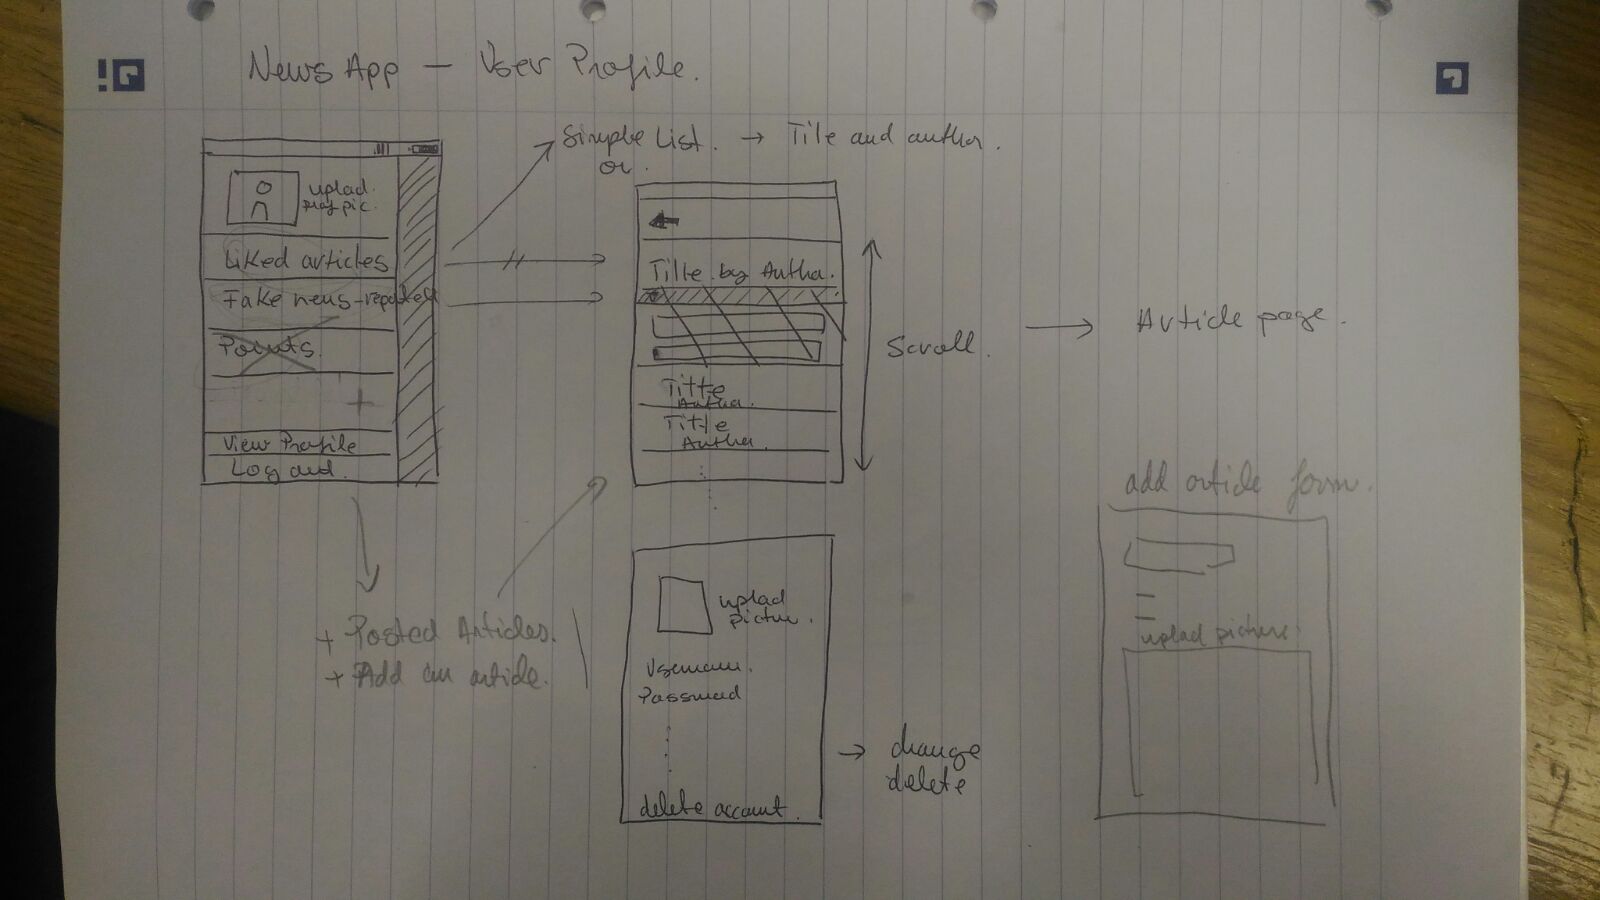 News App — User Profile.
Simple List. → Title and author.
or.
upload
prof pic.
Liked articles
Fake news-reported
Points.
+
View Profile
Log out.
Title by Author.
Title
Author.
Title
Author.
Scroll.
→ Article page.
+ Posted Articles.
+ Add an article.
upload
picture.
Username.
Password
delete account.
→ change
delete
add article form.
upload picture.